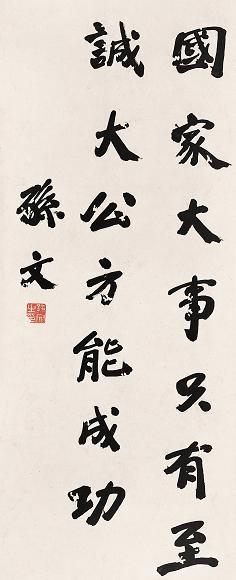 國家大事只有至
誠大公方能成功
孫文